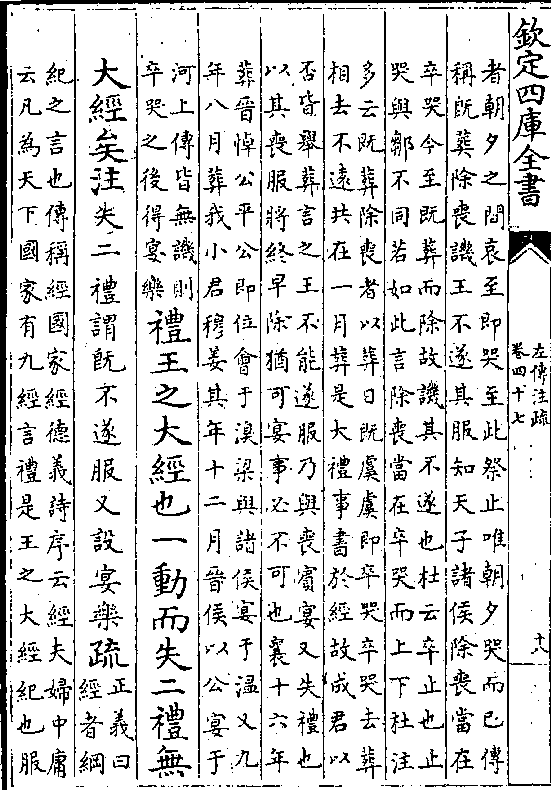 欽定四庫全書
左傳注疏
卷四十七
十八
者朝夕之間哀至即哭至此祭止唯朝夕哭而已傳
稱既葬除喪譏王不遂其服知天子諸侯除喪當在
卒哭今至既葬而除故譏其不遂也杜云卒止也止
哭與鄭不同若如此言除喪當在卒哭而上下杜注
多云既葬除喪者以葬日既虞虞即卒哭卒哭去葬
相去不遠共在一月葬是大禮事書於經故成君以
否皆舉葬言之王不能遂服乃與喪賓宴又失禮也
以其喪服將終早除猶可宴事必不可也襄十六年
葬晉悼公平公即位會于溴梁與諸侯宴于溫又九
年八月葬我小君穆姜其年十二月晉侯以公宴于
河上傳皆無譏則
卒哭之後得宴樂
禮王之大經也一動而失二禮無
大經矣注失二禮謂既不遂服又設宴樂疏
正義曰
經者綱
紀之言也傳稱經國家經德義詩序云經夫婦中庸
云凡為天下國家有九經言禮是王之大經紀也服